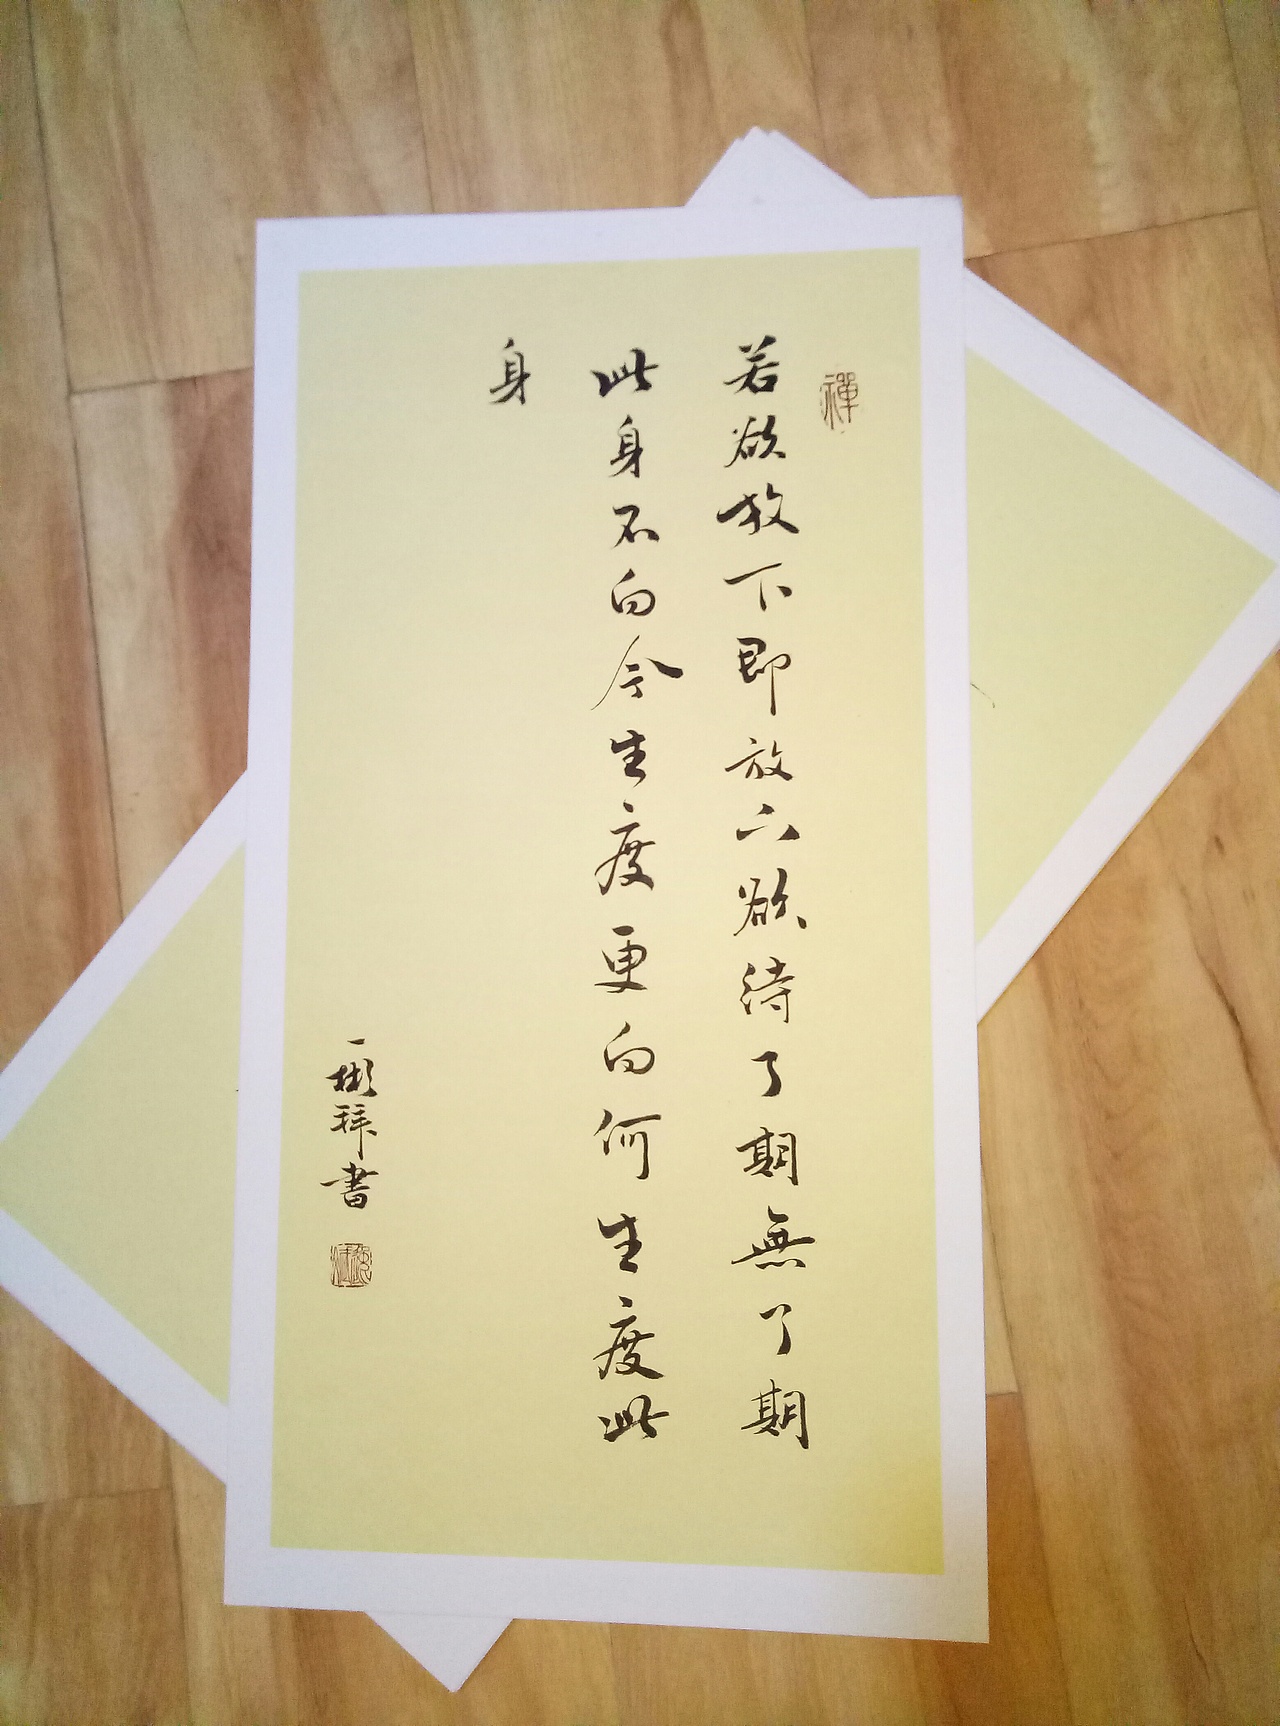 禪
若欲放下即放下欲待了期無了期
此身不向今生度更向何生度此
身
一彬拜書